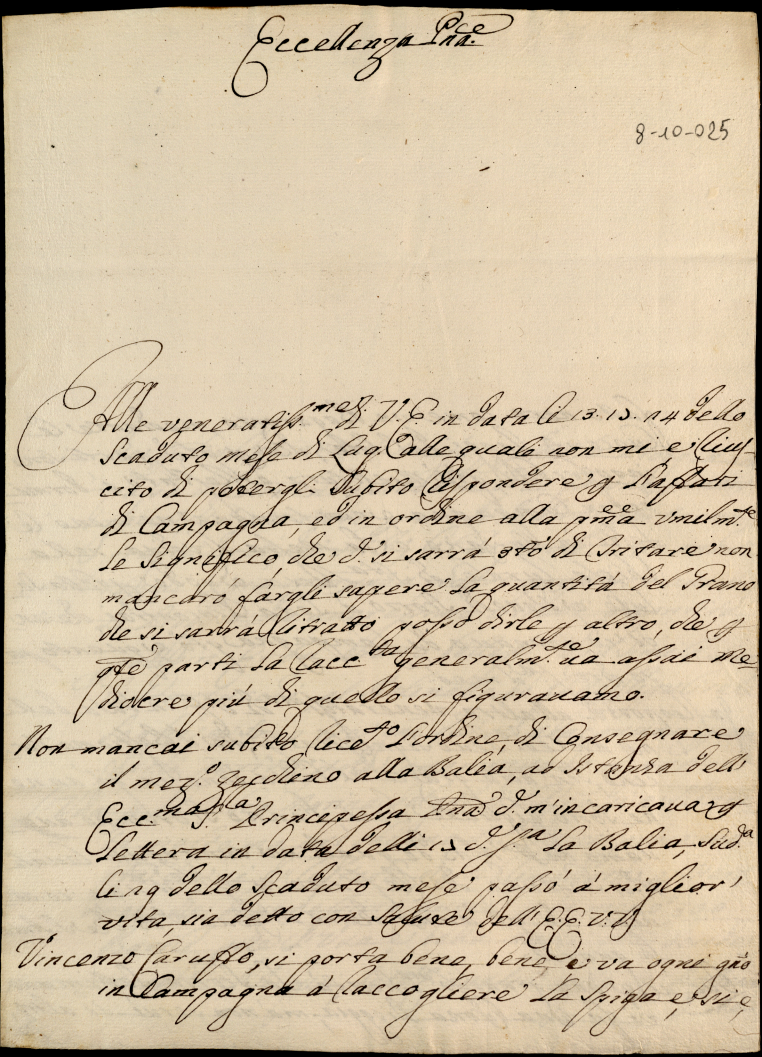 Eccellenza Pnã.ce
8-10-025
Alle veneratiss.me di V.E. in data li 13. 13. 14 dello
Scaduto mese di Lug.o alle quali non mi è rius-
cito di potergli subito rispondere p l'affari
di Campagna, ed in ordine alla pm̃a vmilm.te
le significo, che q.do si sarrà sto di tritare non
mancarò fargli sapere la quantità del Grano
che si sarrà ritratto posso dirle p altro, che p
qte parti la racc.ta generalm.te va assai me-
diocre più di quello si figuravamo.
Non mancai subito rice.to l'ordine di Consegnare
il mez.o Zecchino alla Balia, ad istanza dell'
Ecc.ma S.ra Principessa Pnã q.do m'incaricava p
lettera in data delli 13 d.o La Balia, Sud.a
li 29 dello Scaduto mese passò à miglior'
vita, sia detto con salute dell'E.E. V.V.
Vincenzo Caruffo, si porta bene, bene, e va ogni gno
in Campagna à raccogliere la spiga e, si è,